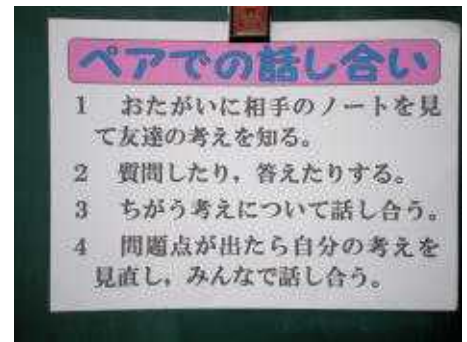 ペアでの話し合い
1 おたがいに相手のノートを見
て友達の考えを知る。
2 質問したり，答えたりする。
3 ちがう考えについて話し合う。
4 問題点が出たら自分の考えを
見直し，みんなで話し合う。